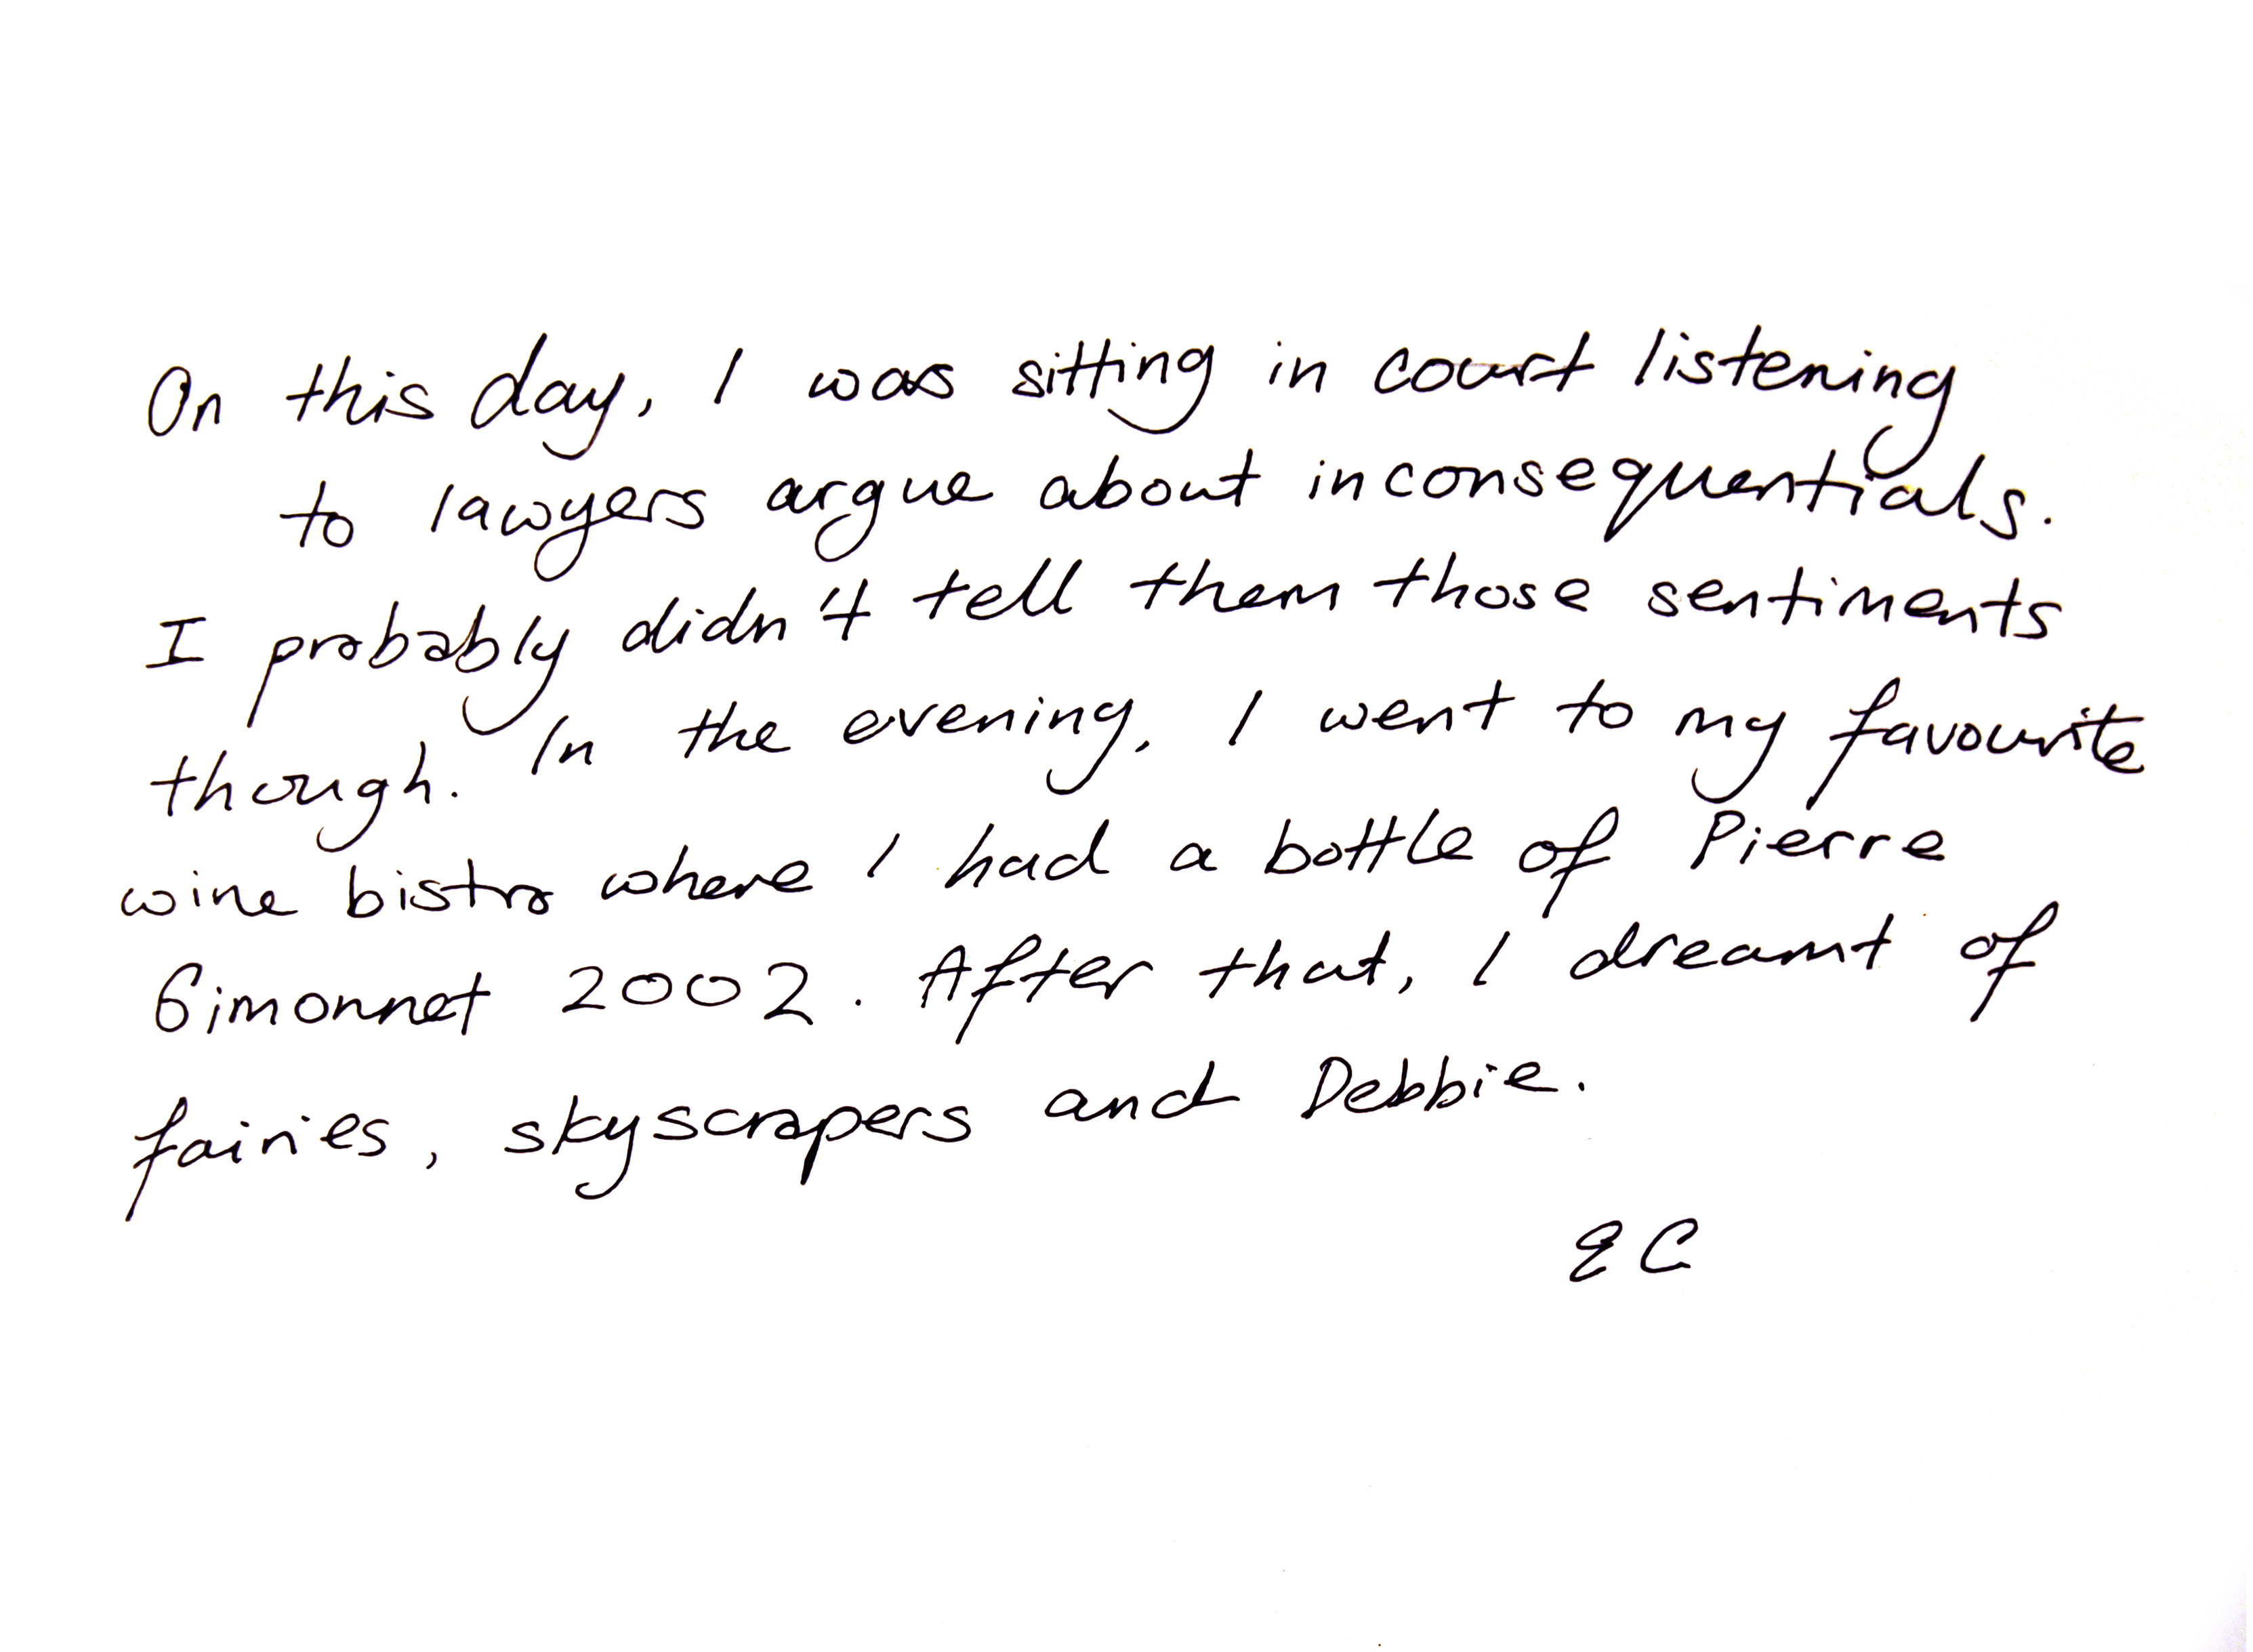 On this day, I was sitting in court listening
to lawyers argue about inconsequentials.
I probably didn't tell them those sentiments
though. In the evening, I went to my favourite
wine bistro where I had a bottle of Pierre
Gimonnet 2002. After that, I dreamt of
fairies, skyscrapers and Debbie.
EC